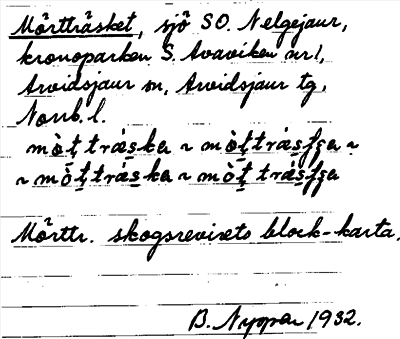 Mörtträsket, sjö SO. Nelgejaur,
kronoparken S. Avaviken nr 1,
Arvidsjaur sn, Arvidsjaur tg,
Norrb. l.
mòt̠ tráska ~ mòt̠ trásʃʒa ~
~ mòt̠ tráska ~ mòt̠ trásʃʒa
Mörttr. skogsrevirets block-karta.
B. Nyman 1932.